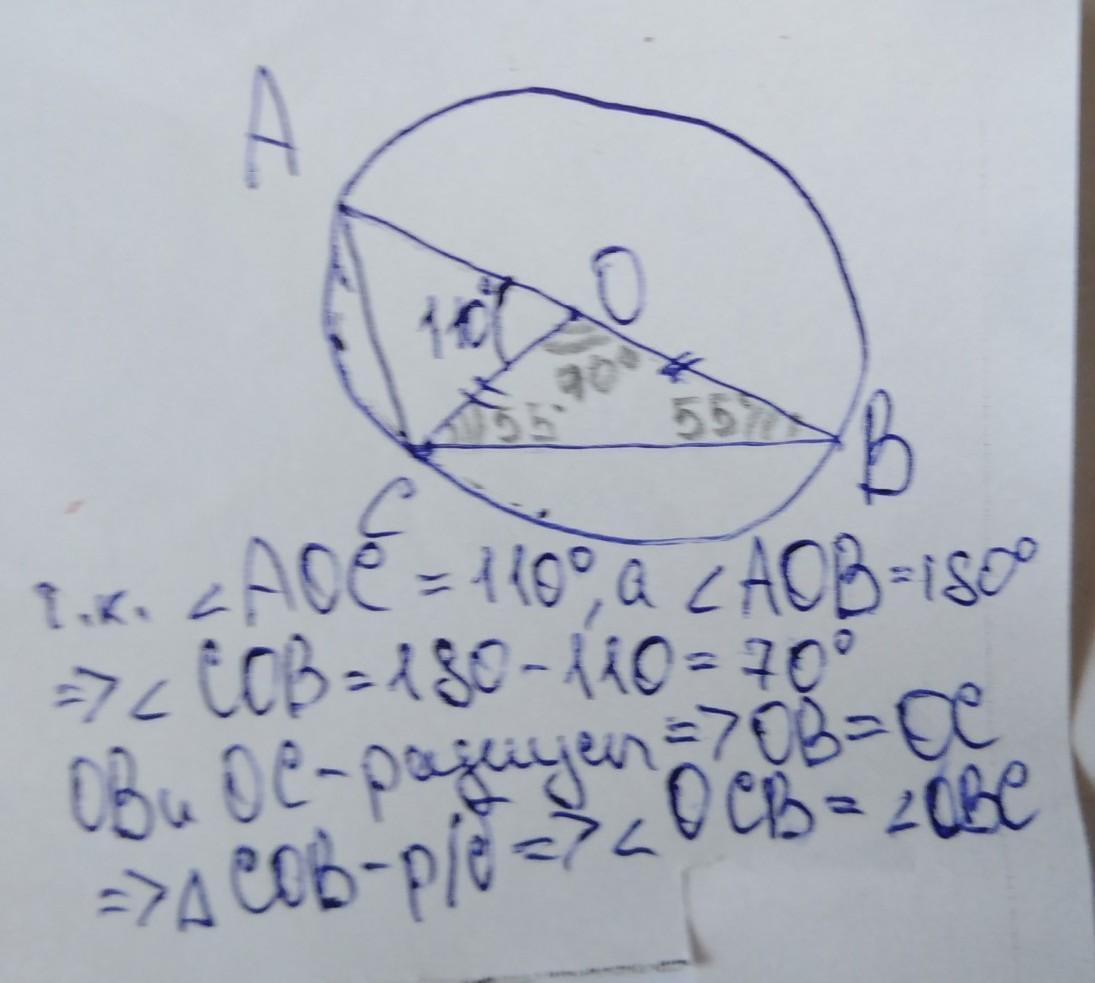 A
O
110°
70°
55°
55°
B
C
т.к. ∠AOC = 110°, а ∠AOB = 180°
=> ∠ COB = 180 - 110 = 70°
OB и OC - радиусы => OB = OC
=> Δ COB - р/б => ∠ OCB = ∠OBC